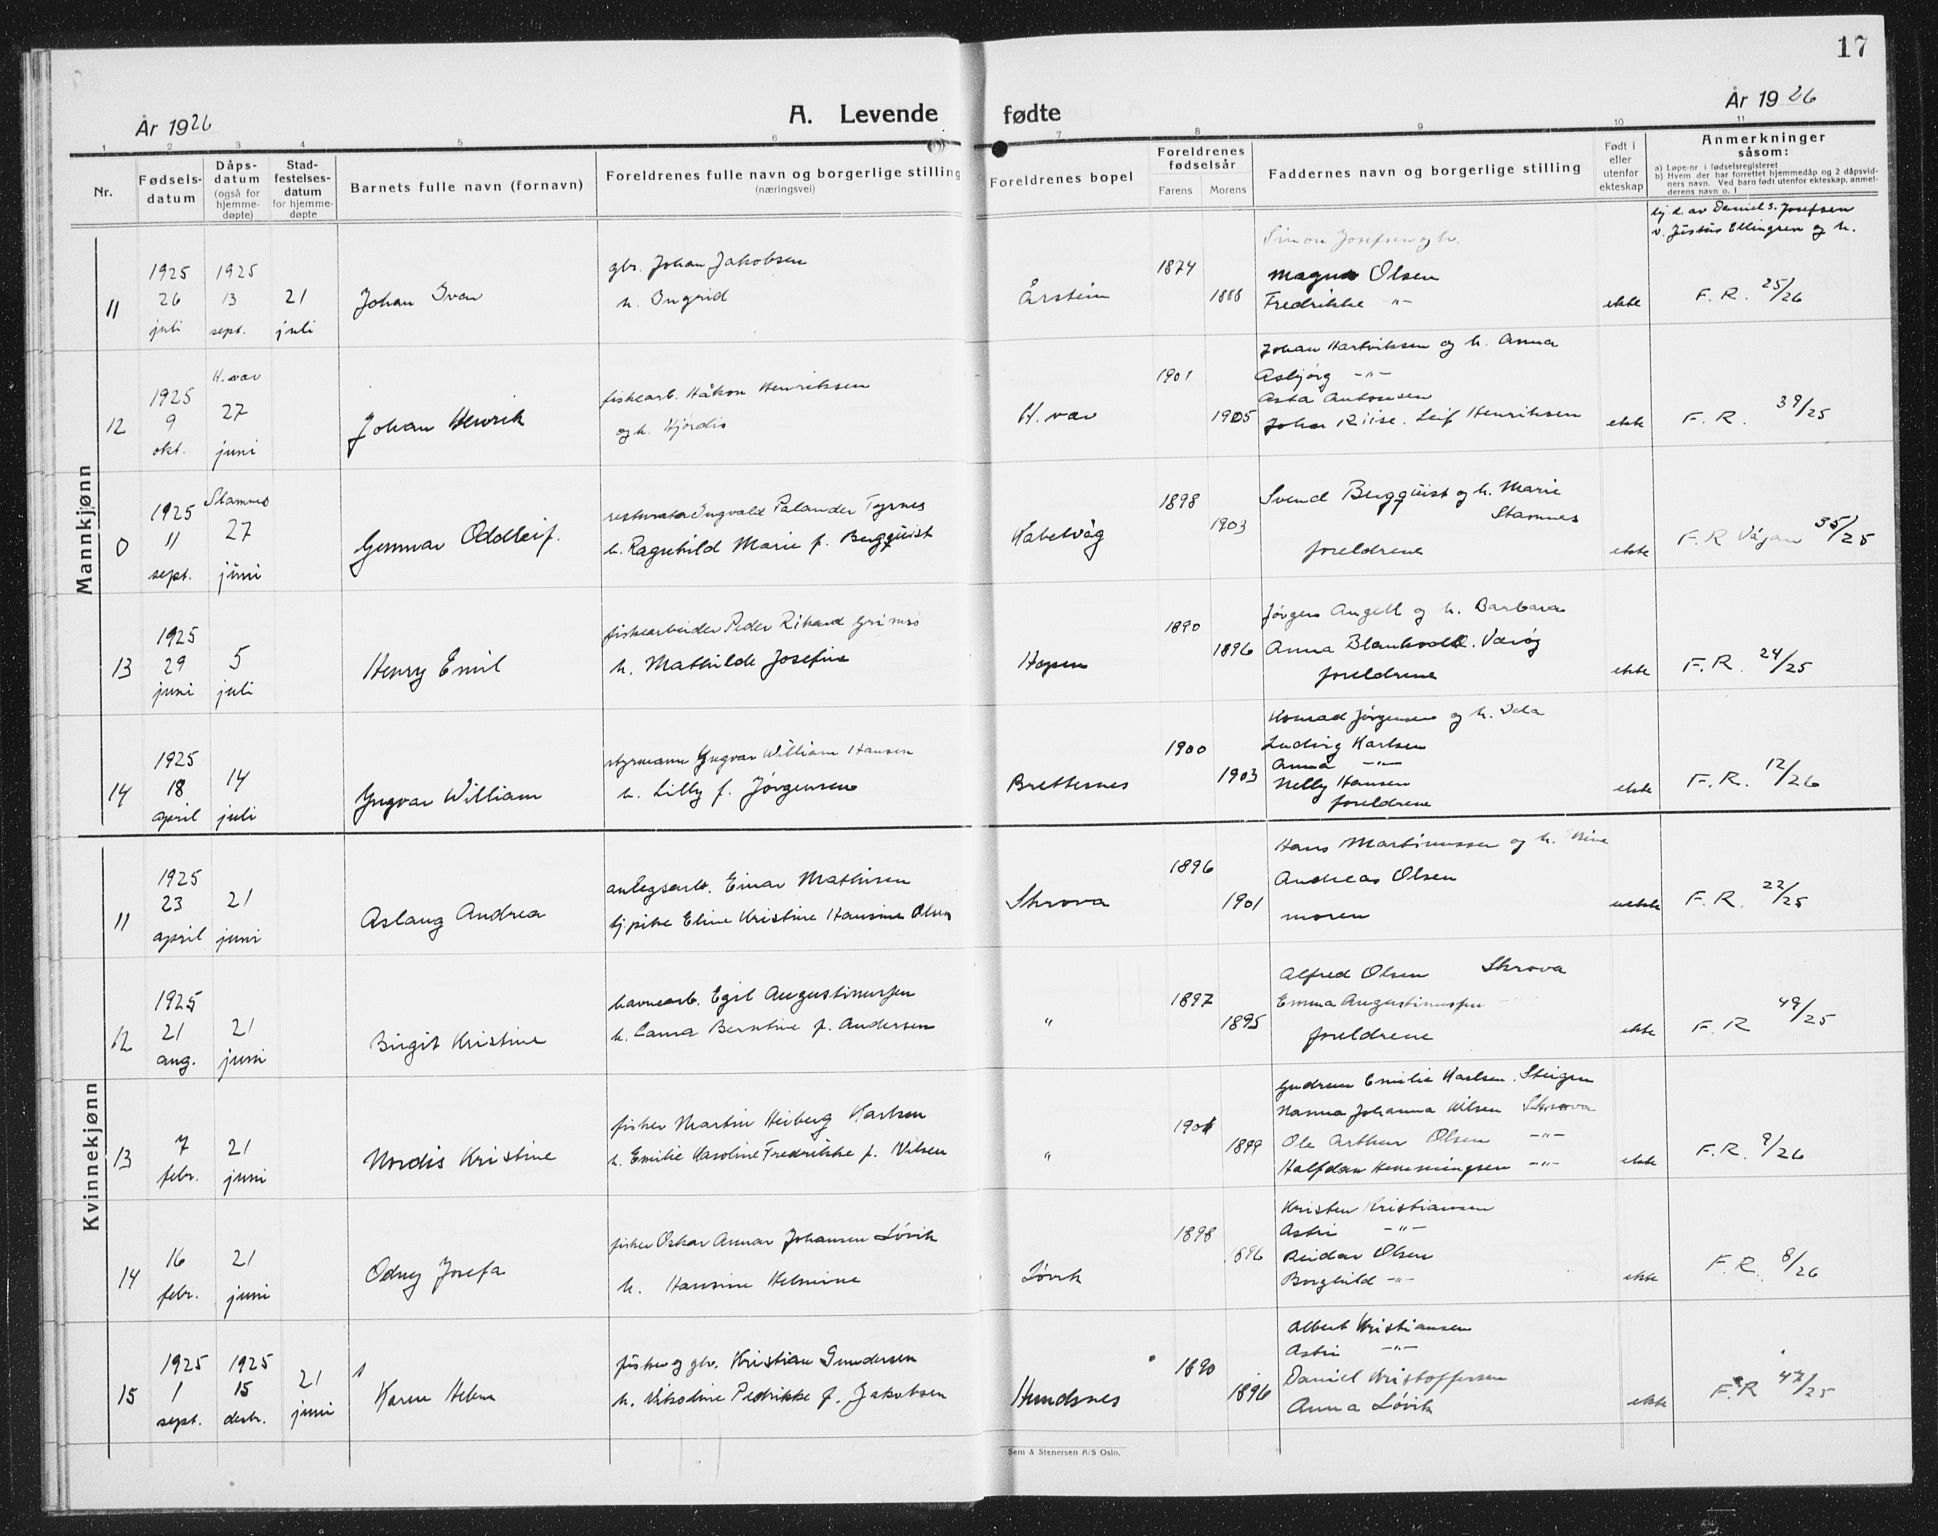 17
År 1926
A. Levende fødte
År 1926
1 2 3 4 5 6 7 8 9 10 11
Nr.
Fødsels-datum
Dåps-datum (også for hjemme-døpte)
Stad-festelses-datum for hjemme-døpte
Barnets fulle navn (fornavn)
Foreldrenes fulle navn og borgerlige stilling (næringsvei)
Foreldrenes bopel
Foreldrenes fødselsår
Farens Morens
Faddernes navn og borgerlige stilling
Født i eller utenfor ekteskap
Anmerkninger såsom:
a) Løpe-nr i fødselsregisteret
b) Hvem der har forrettet hjemmedåp og 2 dåpsvid-
ners navn. Ved barn født utenfor ekteskap, anmel-
derens navn o. l
Mannkjønn
11
1925 26 juli
1925 13 sept.
21 juli
Johan Ivar
gbr. Johan Jakobsen
h. Ingrid
Årstein
1874
1888
Simon Josefsen og h.
Magna Olsen
Fredrikke -"-
ekte
hj. d. av Daniel S. Josefsen
v. Justus Ellingsen og h.
F. R. 25/26
12
1925 9 okt.
H. vær 27 juni
Johan Henrik
fiskearb. Håkon Henriksen
og h. Hjördis
H. vær
1901
1905
Johan Hartviksen og h. Anna
Asbjørg -"-
Asta Antonsen
Johan Riise. Leif Henriksen
ekte
F. R. 39/25
0
1925 11 sept.
Stamnes 27 juni
Gunnar Oddleif.
Ingvald Palander Tyrnes
h. Ragnhild Marie f. Bergquist
Kabelvåg
1898
1903
Svend Bergquist og h. Marie
Stamnes
foreldrene
ekte
F. R Vågan 35/25
13
1925 29 juni
5 juli
Henry Emil
fiskearbeider Peder Rikard Grimsø
h. Mathilde Josefine
Hopen
1890
1896
Jørgen Angell og h. Barbara
Anna Værøy
foreldrene
ekte
F. R. 24/25
14
1925 18 april
14 juli
Yngvar William
styrmann Yngvar William Hansen
h. Lilly f. Jørgensen
Brettesnes
1900
1903
Konrad Jørgensen og h. Ida
Ludvig Karlsen
Anna -"-
Nelly Hansen
foreldrene
ekte
F. R. 12/26
Kvinnekjønn
11
1925 23 april
21 juni
Aslaug Andrea
anlegsarb. Einar Mathisen
tj. pike Eline Kristine Hansine Olsen
Skrova
1896
1901
Hans Martinussen og h.
Andreas Olsen
moren
uekte
F. R. 22/25
12
1925 21 aug.
21 juni
Birgit Kristine
havnearb. Egil Augustinussen
h. Laura Berntine f. Andersen
"
1897
1895
Alfred Olsen Skrova
Emma Augustinussen
foreldrene
ekte
F. R 49/25
13
7 febr.
21 juni
Nordis Kristine
fisker Martin Heiberg Karlsen
h. Emilie Karoline Fredrikke f. Nilsen
"
1901
1899
Gudrun Emilie Karlsen. Steigen
Nanna Johanna Nilsen Skrova
Ole Arthur Olsen -"-
Halfdan Hemmingsen -"-
ekte
F. R. 9/26
14
16 febr.
21 juni
Odny Josefa
fisker Oskar Annar Johansen Løvik
h. Hansine Helmine
Løvik
1898
1896
Kristen Kristiansen
Astri -"-
Reidar Olsen
Borghild -"-
ekte
F. R. 8/26
15
1925 1 sept.
1925 15 desbr.
21 juni
Karen Helene
fisker og gbr. Kristian Gundersen
h. Nikoline Pedrikke f. Jakobsen
Hundsnes
1890
1896
Albert Kristiansen
Astri -"-
Daniel Kristoffersen
Anna Løvik
ekte
F. R 47/25
Sem & Stenersen A/S Oslo.